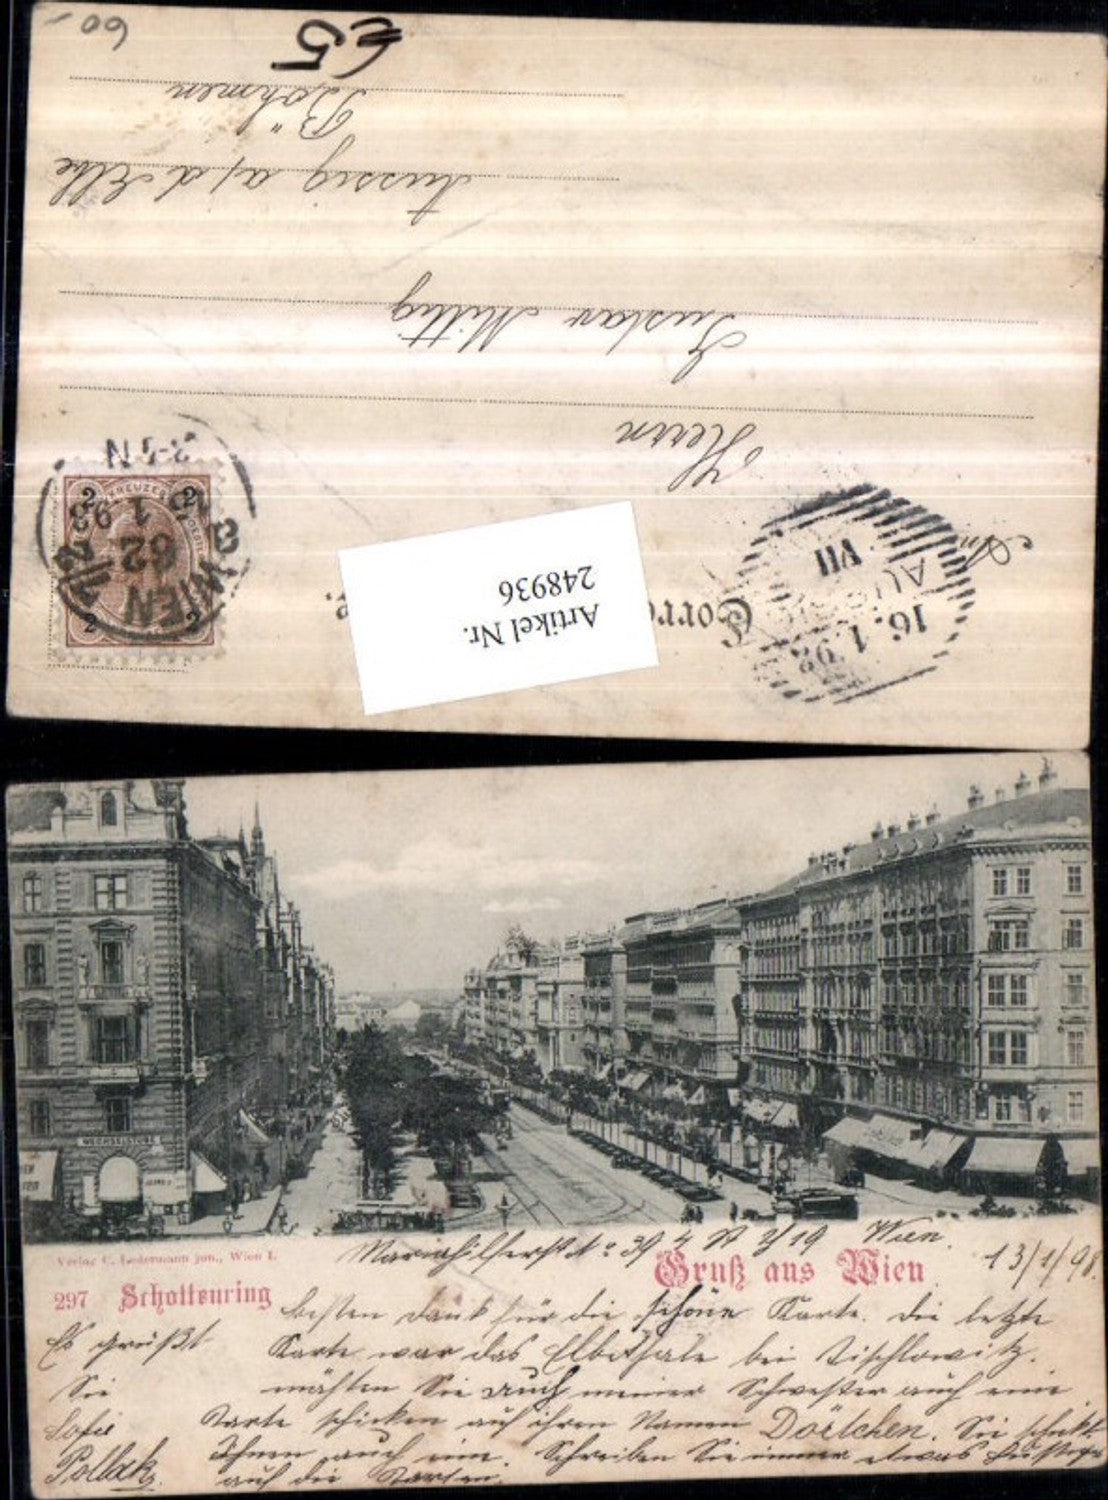 60.-
€5
Böhmen
Aussig a/d Elbe
Gustav Mittig
Herrn
2-3 N
WIEN
62
1 98
KREUZER
2 2
2 2
Artikel Nr.
248936
Corre
An
AU
16. 1. 98
VII
WECHSELSTUBE
Verlag C. Ledermann jun., Wien I.
Mariahilferst No 39 4 St Th 19 Wien.
13/1/98.
297 Schottenring
Gruß aus Wien
besten Dank für die schöne Karte. Die letzte
Es grüßt
Karte war das Elbethale bei Tischlowitz.
Sie
möchten Sie auch meiner Schwester auch eine
Sofie
Karte schicken auf ihren Namen Dörlchen. Sie schickt
Pollak.
Ihnen auch eine. Schreiben Sie immer etwas
auf die Karten.